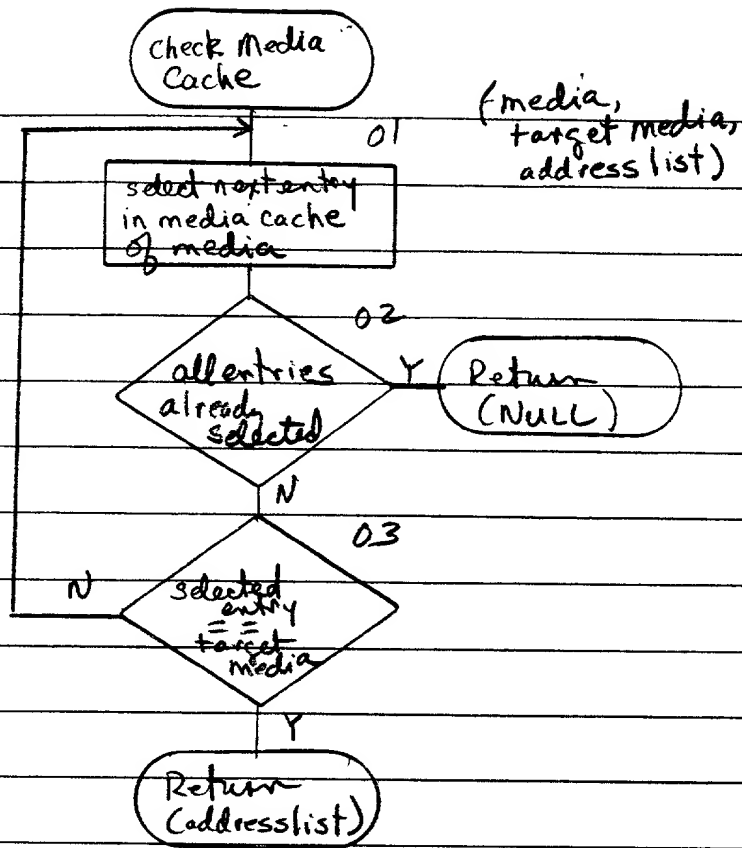 check Media
Cache
(media,
target media,
address list)
01
select next entry
in media cache
of media
02
all entries
already
selected
Y
Return
(NULL)
N
03
selected
entry
==
target
media
N
Y
Return
(addresslist)